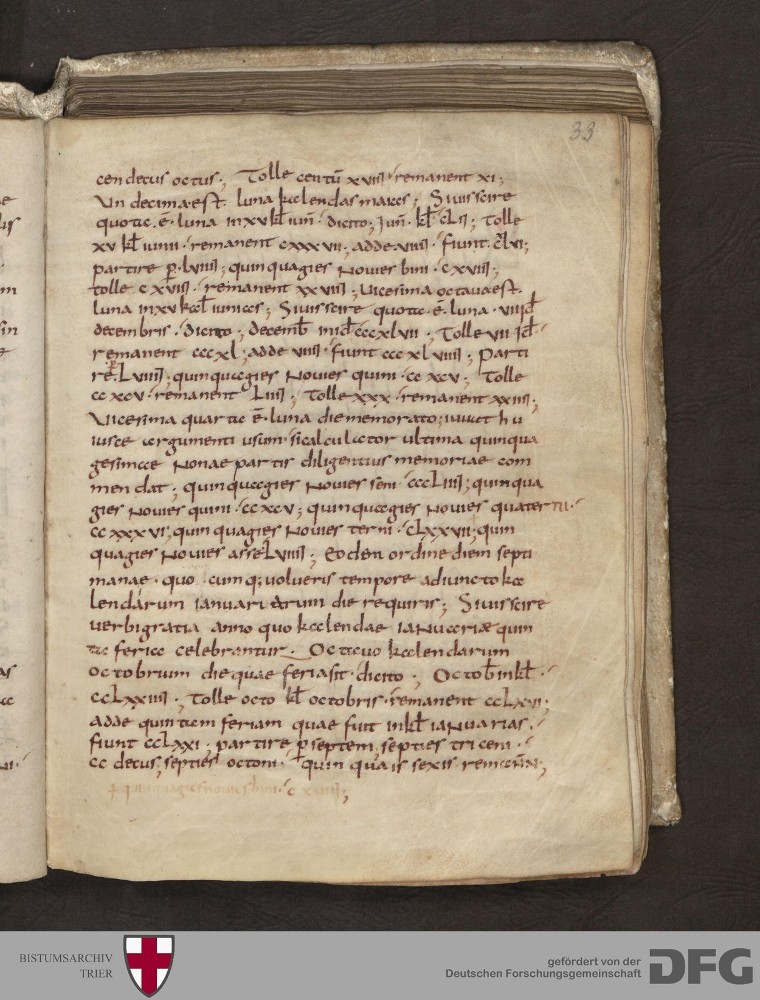 33
cen decus octus; Tolle centū xviiii · remanent xi;
Undecima est luna kalendas maias; Si uis scire
quota · ē · luna in xv kł iuñ · dicito; Juñ · kł cLi; Tolle
xv kł iunii · remanent cxxxvii; adde viiii · fiunt · cLvi;
partire p · Lviiii; quinquagies nouies bini · cxviii;
tolle cxviii · remanent xxviii; Uicesima octaua est ·
luna in xv kal iunias; Si uis scire quota · ē · luna · viiid
decembris · dicito; decemb in id cccxlvii; Tolle vii id ·
remanent cccxl; adde viiii · fiunt cccxlviiii; Parti
re Lviiii; quinquagies nouies quini · ccxcv; Tolle
ccxcv · remanent Liiii; Tolle xxx · remanent xxiiii;
Uicesima quarta ē · luna die memorato; iuuat hu
iusce argumenti usum · si calculator ultima quinqua
gesimae nonae partis diligentius memoriae com
mendat; quinquagies nouies seni · cccLiiii; quinqua
gies nouies quini · ccxcv; quinquagies nouies quaterni ·
ccxxxvi; quinquagies nouies terni · cLxxvii; quin
quagies nouies asse Lviiii; Eodem ordine diem septi
manae · quo · cumq; uolueris tempore adiuncto ka
lendarum ianuariarum die requiris; Si uis scire
uerbi gratia anno quo kalendae ianuariae quin
ta feria celebrantur · Octauo kalendarum
octobrum die quae feria sit · dicito; Octob in kł ·
ccLxxiiii · Tolle octo kł octobris · remanent ccLxvi;
adde quintam feriam quae fuit in kł ianuarias ·
fiunt ccLxxi; partire p septem, septies triceni ·
cc decus; septies octoni · quinquais sexis remanent;
+ quinquagies nouies bini · cxviii;
BISTUMSARCHIV
TRIER
gefördert von der
Deutschen Forschungsgemeinschaft
DFG